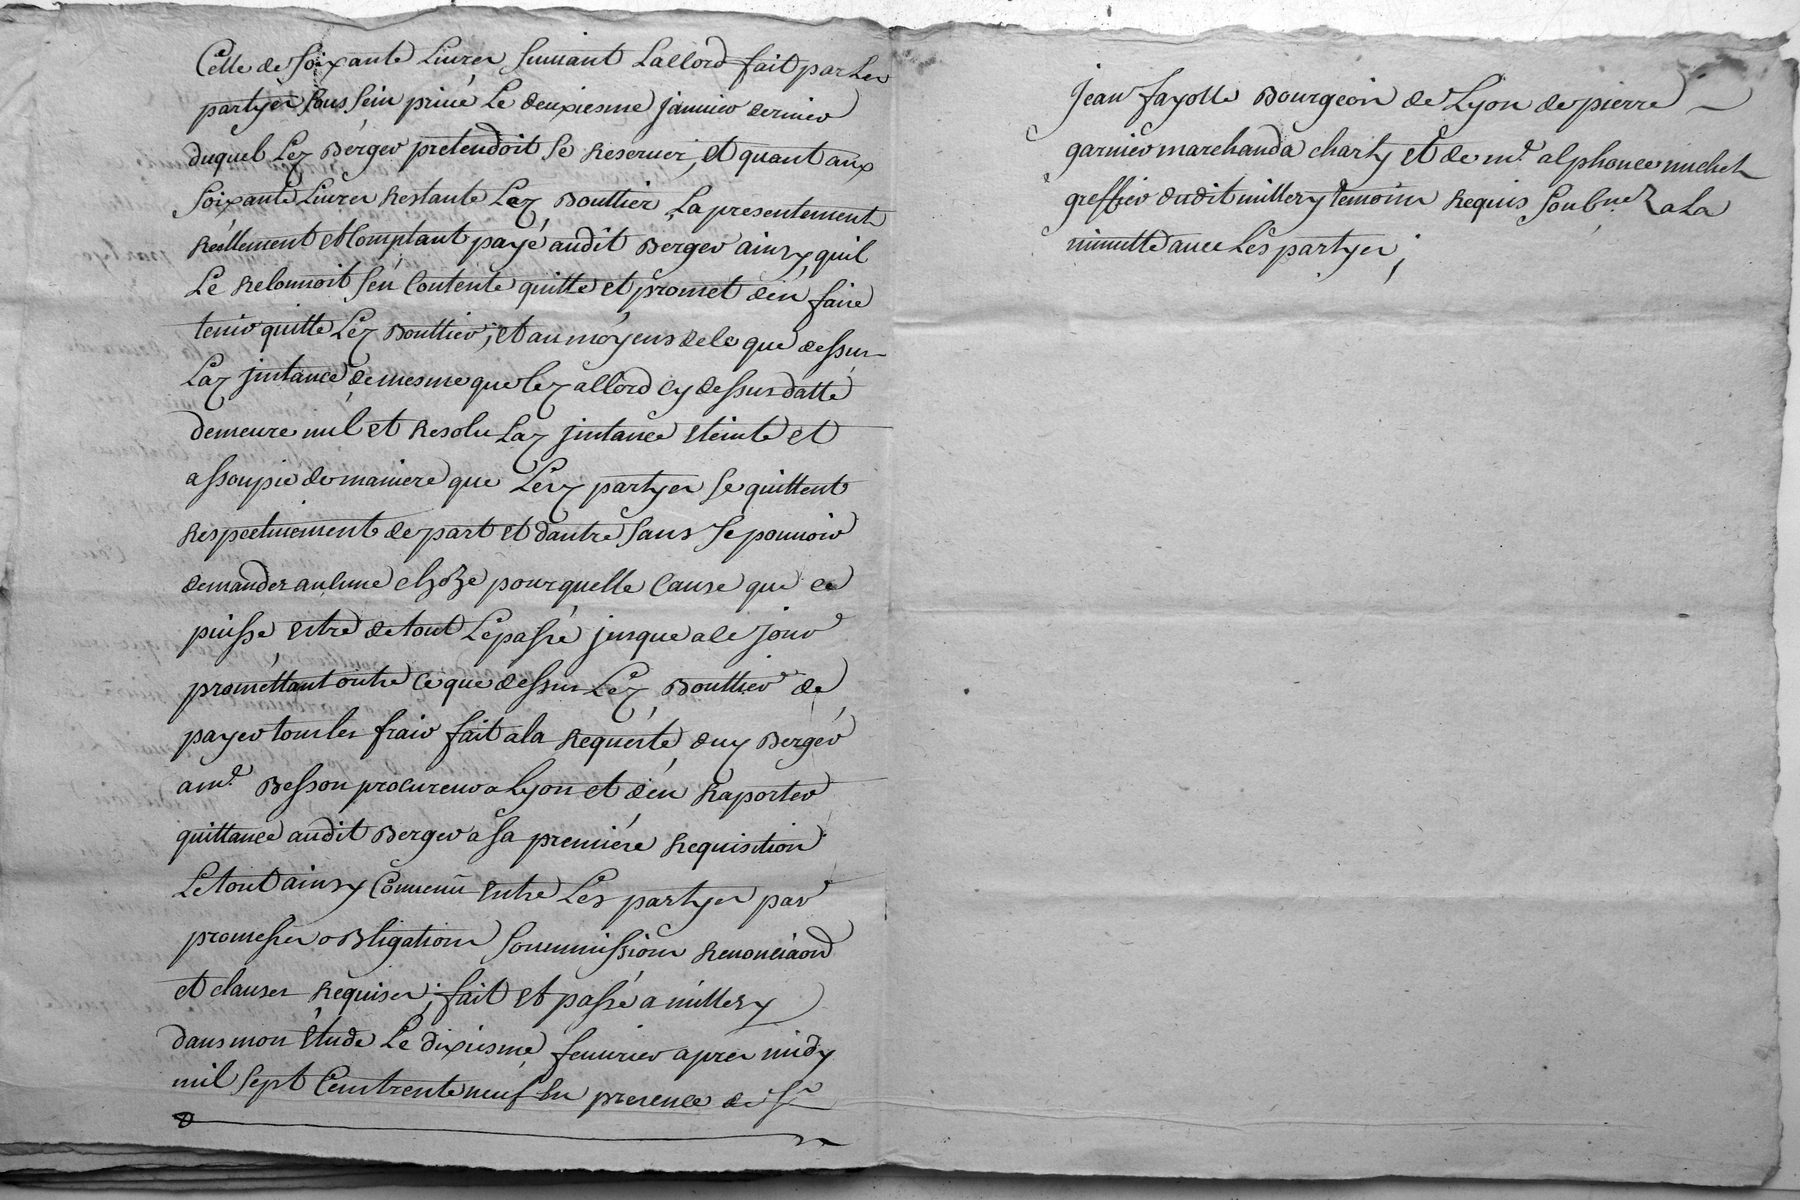 Celle de Soixante Livres suivant Laccord fait par Les
partyes sous sein privé Le deuxiesme janvier dernier
duquel Led Berger pretendoit se Reserver, et quant aux
Soixante Livres Restante Led Bouttier La presentement
Réellement et Comptant payé audit Berger ainsy quil
Le Reconnoit sen Contente quitte et promet d'en faire
tenir quitte Led Bouttier, et au moyens de ce que dessus
Lad jnstance de mesme que led accord cy dessus datté
demeure nul et Resolu Lad jnstance eteinte et
assoupie de maniere que Lesd partyes se quittent
Respectivement de part et dautre sans se pouvoir
demander aucune choze pour quelle Cause que ce
puisse estre de tout Le passé jusque a ce jour
promettant outre ce que dessus Led Bouttier de
payer tous les frais fait a la Requeste dud Berger
a me. Besson procureur a Lyon et d'en Raporter
quittance audit Berger a sa premiere Requisition
Le tout ainsy Convenu entre Les partyes par
promesses obligations soummissions Renonciaons
et clauses Requises; fait et passé a millery
dans mon étude Le dixiesme fevvrier apres midy
mil sept Cens trente neuf En presence de Sr
Jean fayolle Bourgeois de Lyon de pierre
garnier marchand a charly et de me. alphonce michel
greffier dudit millery temoins Requis soubnez a La
minutte avec Les partyes;